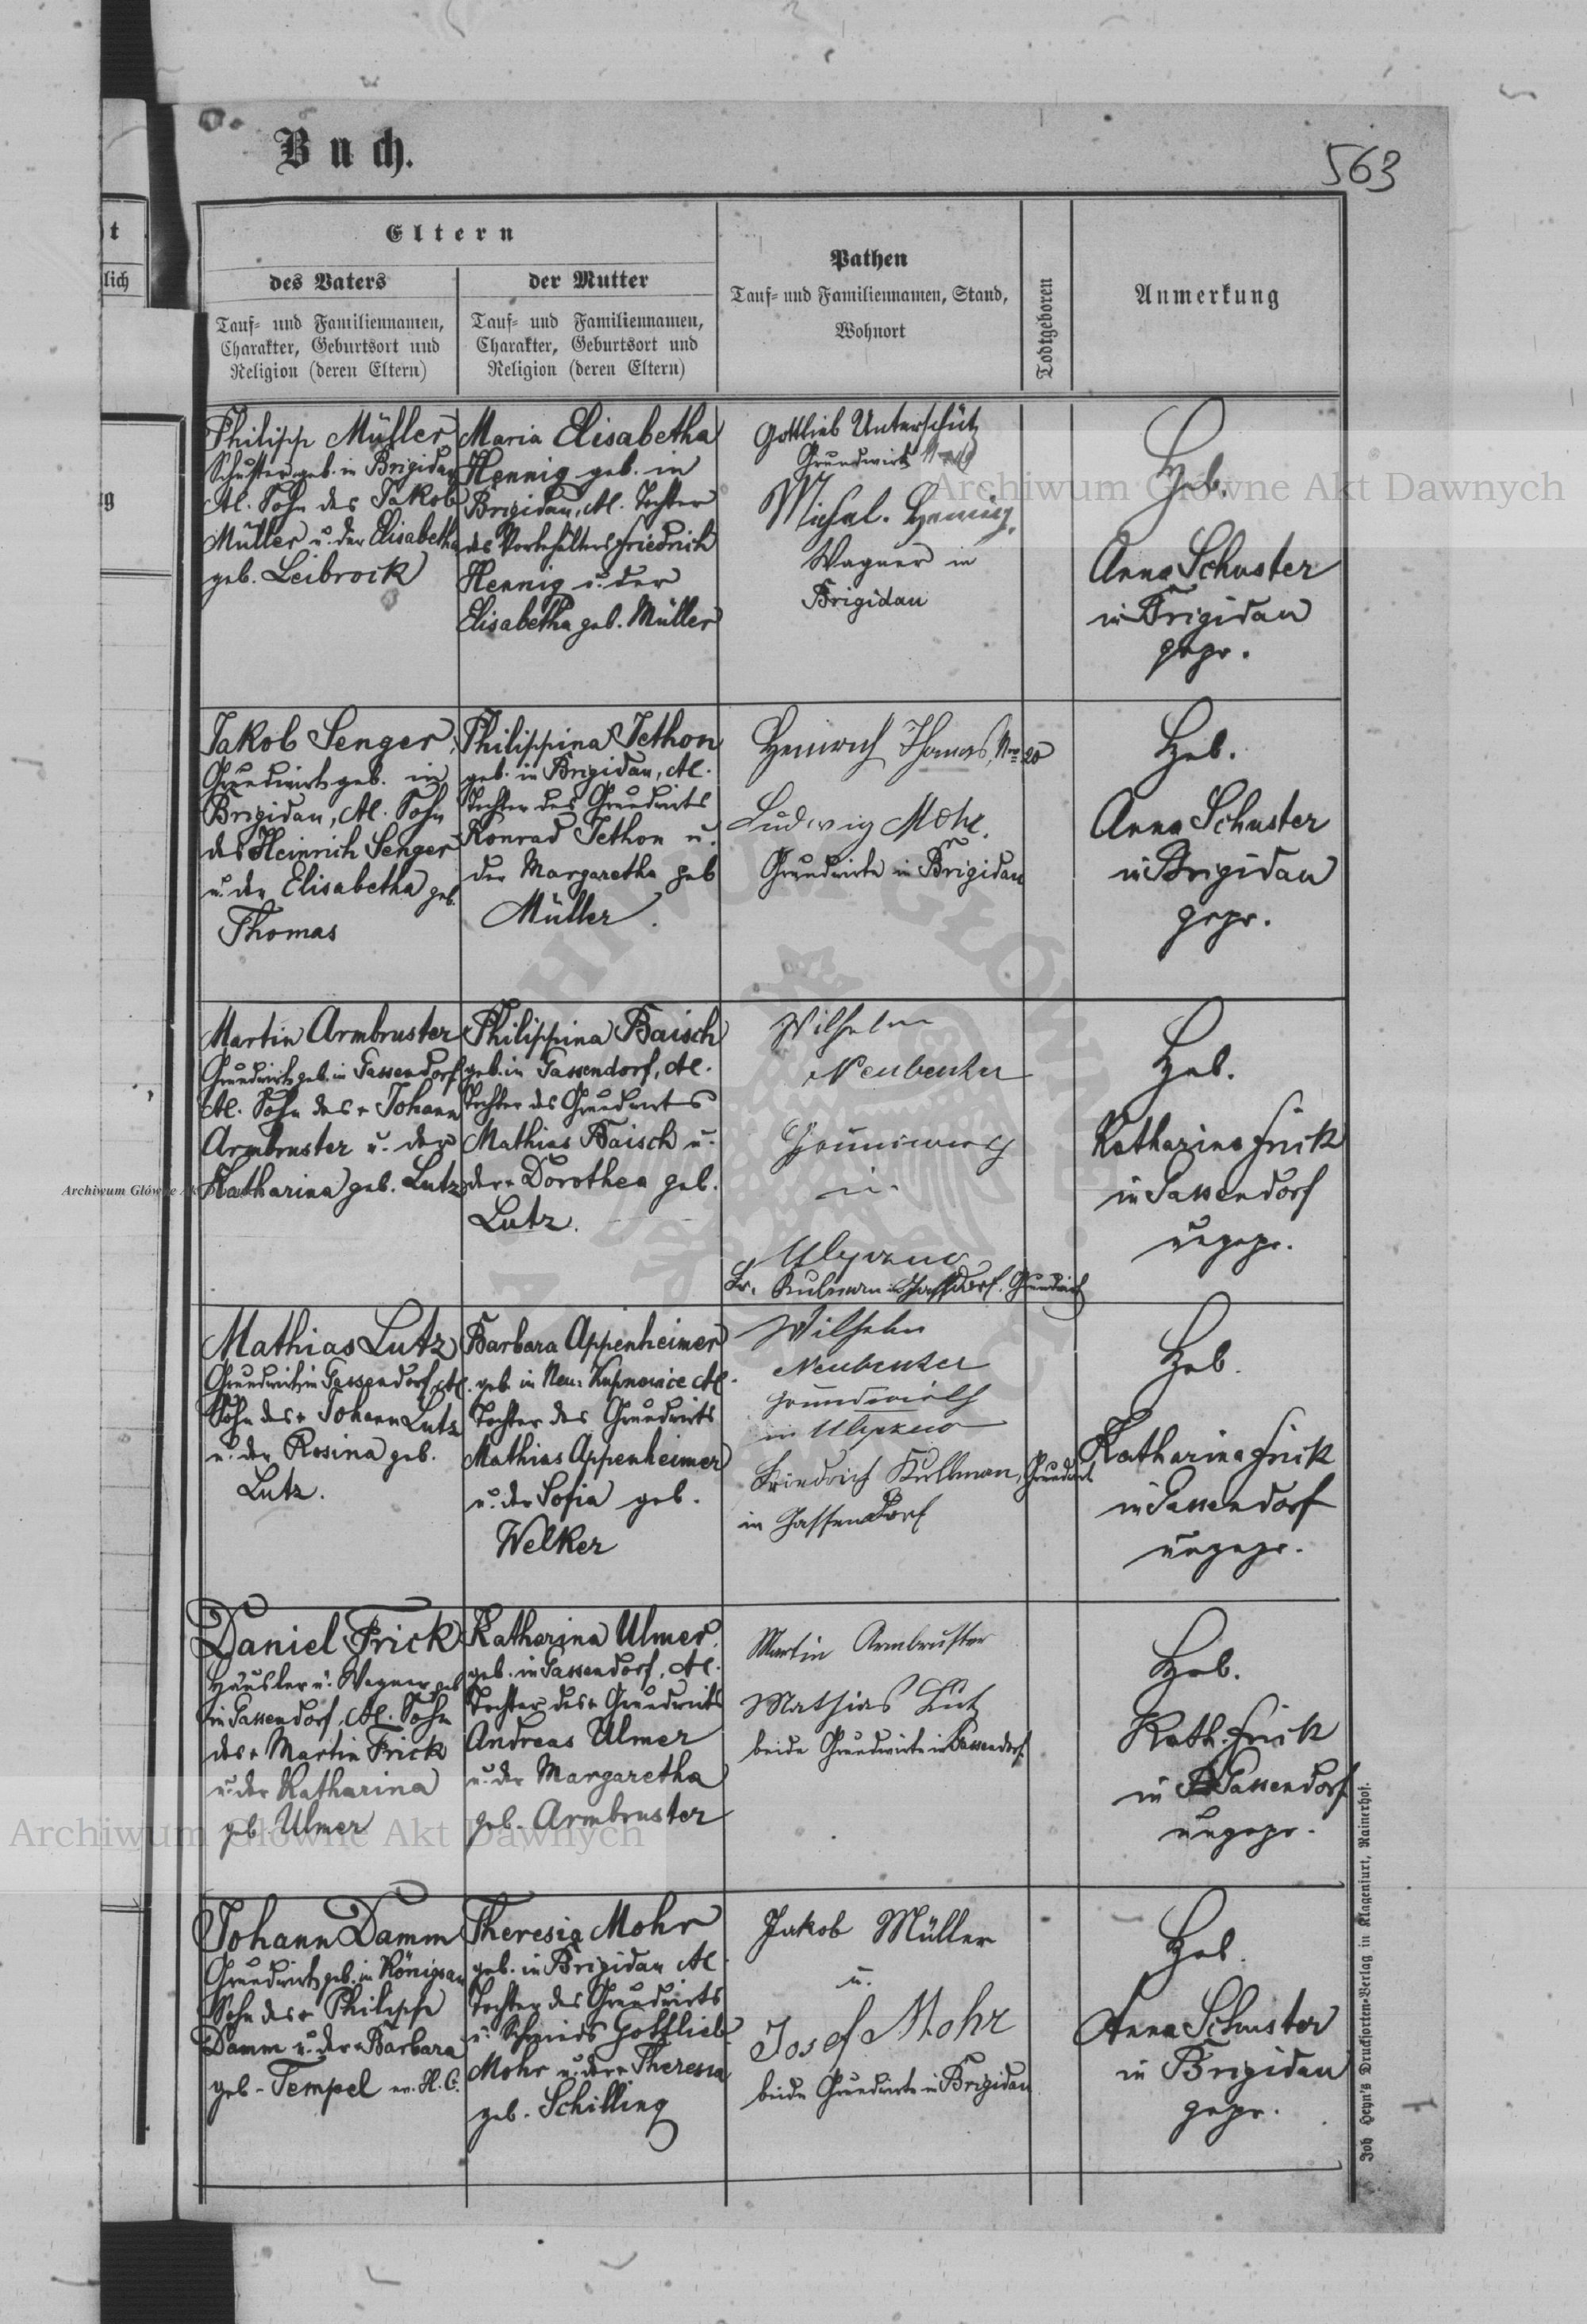 Buch.
563
t
lich
g
Eltern
des Vaters
der Mutter
Pathen
Tauf- und Familiennamen, Stand,
Wohnort
Todtgeboren
Anmerkung
Tauf- und Familiennamen,
Charakter, Geburtsort und
Religion (deren Eltern)
Tauf- und Familiennamen,
Charakter, Geburtsort und
Religion (deren Eltern)
Philipp Müller
Schuster geb. in Brigidau
AC. Sohn des Jakob
Müller u. der Elisabetha
geb. Leibrock
Maria Elisabetha
Hennig geb. in
Brigidau, AC. Tochter
des Vorbehälters Friedrich
Hennig u. der
Elisabetha geb. Müller
Gottlieb Unterschütz
Grundwirth
Michal. Hennig.
Wagner in
Brigidau
Heb.
Anna Schuster
in Brigidau
gepr.
Jakob Senger,
Grundwirth geb. in
Brigidau, AC. Sohn
des Heinrich Senger
u. der Elisabetha geb.
Thomas
Philippina Jethon
geb. in Brigidau, AC.
Tochter des Grundwirts
Konrad Jethon u.
der Margaretha geb
Müller.
Heinrich Thomas, Nro 20
Ludwig Mohr.
Grundwirte in Brigidau
Heb.
Anna Schuster
in Brigidau
gepr.
Martin Armbruster
Grundwirth geb. in Gassendorf
AC. Sohn des + Johann
Armbruster u. der
Katharina geb. Lutz
Philippina Baisch
geb. in Gassendorf, AC.
Tochter des Grundwirts
Mathias Baisch u.
der + Dorothea geb.
Lutz.
Wilhelm
Neubenker
in
Kulman Gassendorf. Grundwirth
Heb.
Katharina Frick
in Gassendorf
ungepr.
Mathias Lutz
Grundwirth in Gassendorf, AC.
Sohn des + Johann Lutz
u. der Rosina geb.
Lutz.
Barbara Appenheimer
geb. in Neu-Kupnowice AC.
Tochter des Grundwirts
Mathias Appenheimer
u. der Sofia geb.
Welker
Wilhelm
Neubenker
Grundwirth
in
Friedrich Kullman, Grundwirt
in Gassendorf
Heb.
Katharina Frick
in Gassendorf
ungepr.
Daniel Frick
Häusler u. Wagner geb
in Gassendorf, AC. Sohn
des + Martin Frick
u. der Katharina
geb Ulmer
Katharina Ulmer,
geb. in Gassendorf, AC.
Tochter des + Grundwirts
Andreas Ulmer
u. der Margaretha
geb. Armbruster
Martin Armbruster
Mathias Lutz
beide Grundwirte in Gassendorf
Heb.
Kath. Frick
in Gassendorf
ungepr.
Johann Damm
Grundwirth geb. in Königsau
Sohn des + Philipp
Damm u. der + Barbara
geb. Tempel ev. H. C.
Theresia Mohr
geb. in Brigidau AC.
Tochter des Grundwirts
u. Schmids Gottlieb
Mohr u. der + Theresia
geb. Schilling
Jakob Müller
u.
Josef Mohr
beide Grundwirte in Brigidau
Heb.
Anna Schuster
in Brigidau
gepr.
Joh Heyn's Drucksorten-Verlag in Klagenfurt, Rainerhof.
Archiwum Główne Akt Dawnych
Archiwum Główne Akt Dawnych